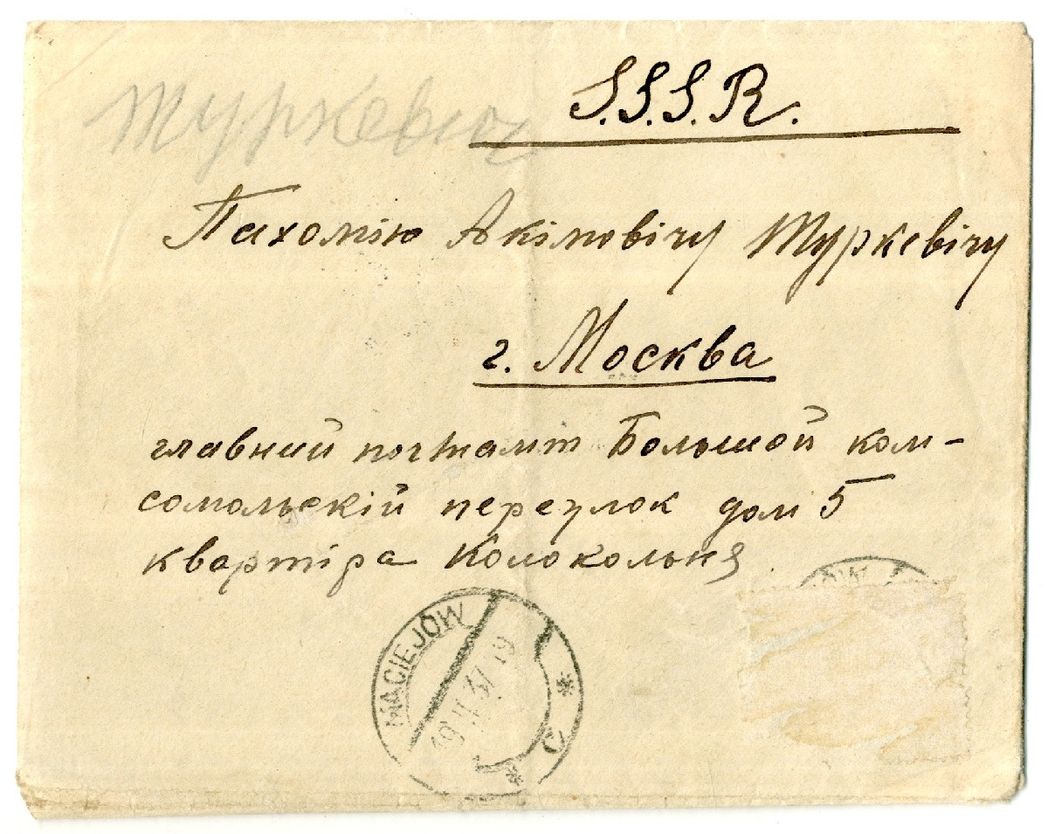 Туркевич
S.S.S.R.
Пахомію Акімовічу Туркевічу
г. Москва
главний почтамт Большой ком-
сомольскій переулок дом 5
квартіра Колокольня
MACIEJÓW